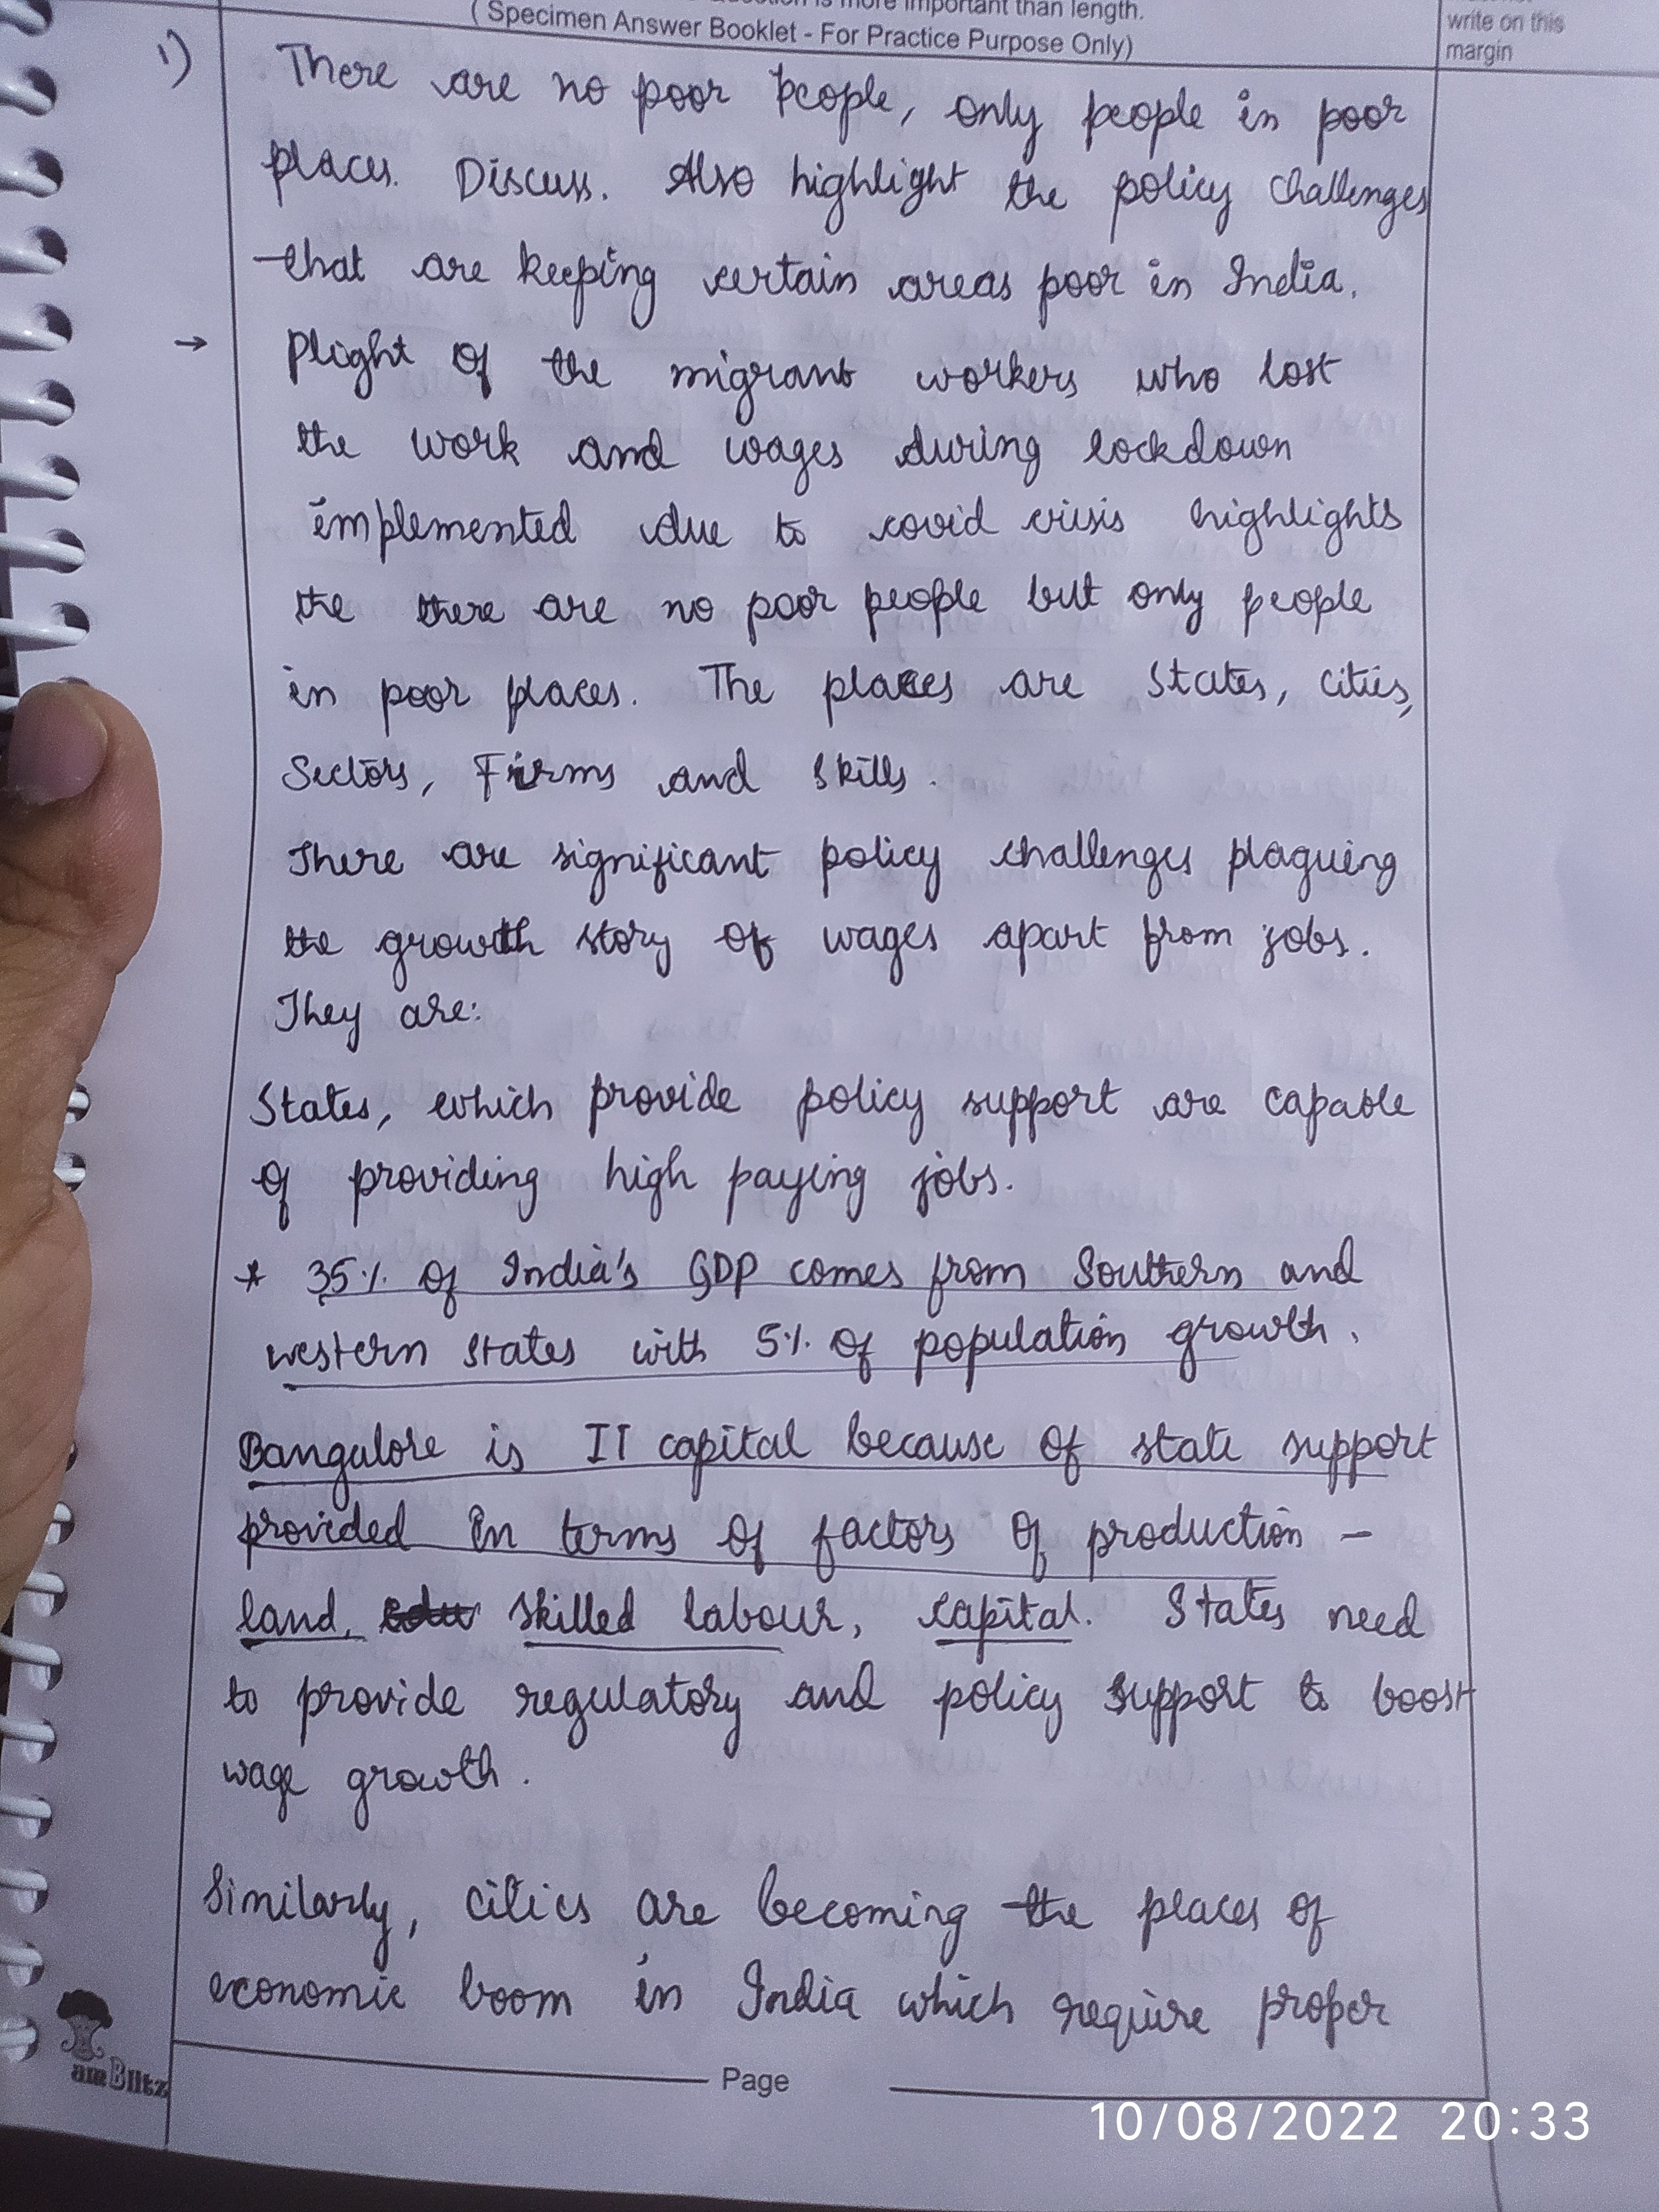 is more important than length.
( Specimen Answer Booklet - For Practice Purpose Only)
write on this
margin
1) There are no poor people, only people in poor
places. Discuss. Also highlight the policy challenges
that are keeping certain areas poor in India.
→ Plight of the migrant workers who lost
the work and wages during lockdown
implemented due to covid crisis highlights
the there are no poor people but only people
in poor places. The places are States, Cities,
Sectors, Firms and Skills.
There are significant policy challenges plaguing
the growth story of wages apart from jobs.
They are:
States, which provide policy support are capable
of providing high paying jobs.
* 35% of India's GDP comes from Southern and
western states with 5% of population growth.
Bangalore is IT capital because of state support
provided in terms of factors of production -
land, skilled labour, capital. States need
to provide regulatory and policy support to boost
wage growth.
Similarly, cities are becoming the places of
economic boom in India which require proper
amBlitz
Page
10/08/2022 20:33